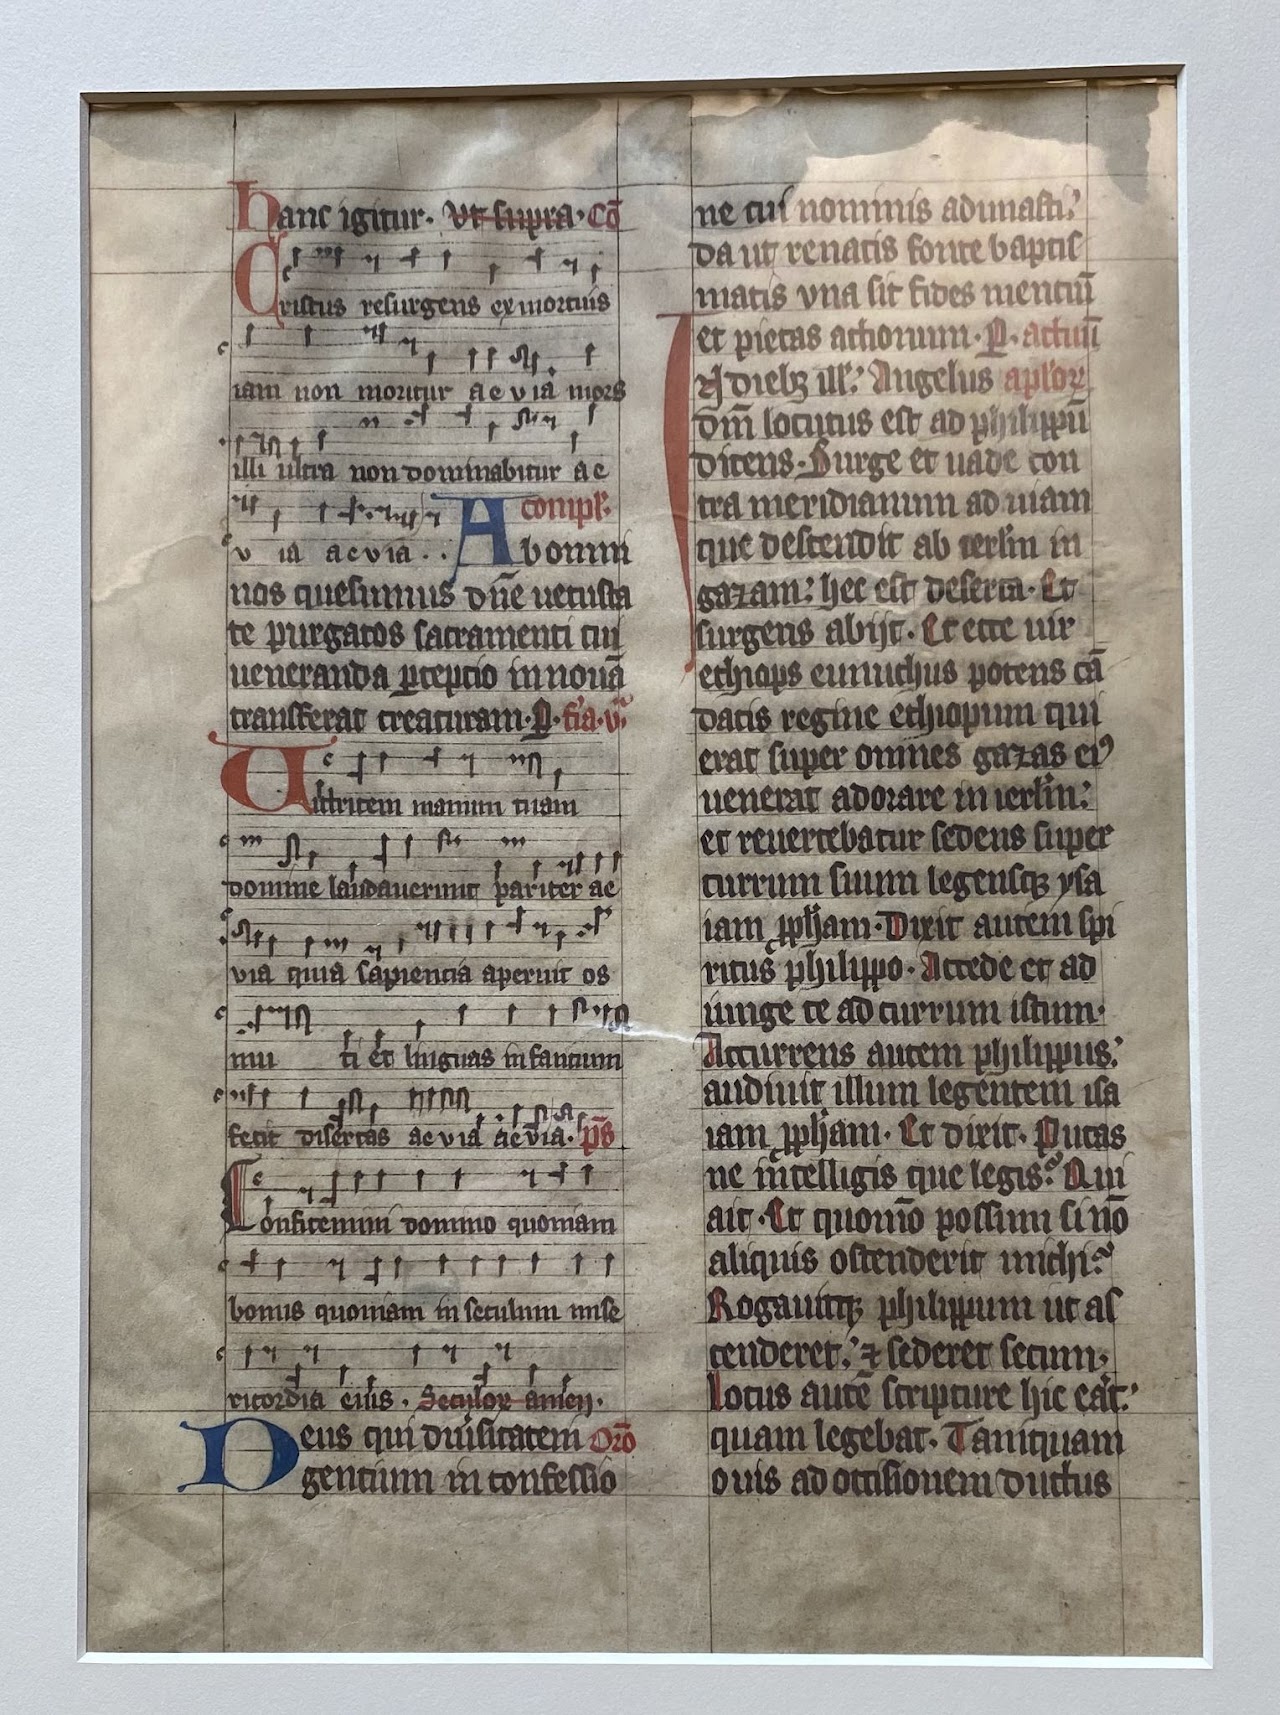 hanc igitur. Vt supra. Cō
Cristus resurgens ex mortuis
iam non moritur aevia mors
illi ultra non dominabitur ae
v ia aevia. . compl'.
Ab omni
nos quesumus dn̄e uetusta
te purgatos sacramenti tui
ueneranda ꝑceptio in nouā
transferat creaturam. P. fr̄ia. v.
Uictricem manum tuam
domine laudauerunt pariter ae
via quia sapiencia aperuit os
mu ti et linguas infantium
fecit disertas aevia aevia. p̄s
Confitemini domino quoniam
bonus quoniam in seculum mise
ricordia eius. Seculoꝝ amen.
Deus qui diuersitatem Oro̅
gentium in confessio
ne tui nominis adunasti:
da ut renatis fonte baptis
matis vna sit fides mentiū
et pietas actionum. P. actuū
In diebꝫ ill': Angelus apl'oꝝ
dn̄i locutus est ad philippū
dicens. Surge et uade con
tra meridianum ad uiam
que descendit ab ierl'm in
gazam: hec est deserta. Et
surgens abijt. Et ecce uir
ethiops eunuchus potens cā
dacis regine ethiopum qui
erat super omnes gazas eiꝰ
uenerat adorare in ierl'm:
et reuertebatur sedens super
currum suum legensqꝫ ysa
iam ꝓph̄am. Dixit autem spi
ritus philippo. Accede et ad
iunge te ad currum istum.
Accurrens autem philippus:
audiuit illum legentem isa
iam ꝓph̄am. Et dixit. Putas
ne intelligis que legis? Qui
ait. Et quomō possum si nō
aliquis ostenderit michi?
Rogauitqꝫ philippum ut as
cenderet: ⁊ sederet secum.
Locus autē scripture hic erat:
quam legebat. Tamquam
ouis ad occisionem ductus